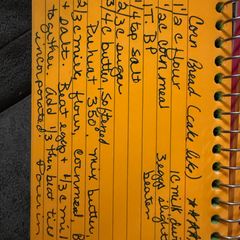 Corn Bread (cake like) ****
1 1/2 c flour 1 c milk, div
1/2 c cornmeal 3 eggs slight
1 T BP beaten
1/4 tsp salt
2/3 c sugar
3/4 c butter, softened
Preheat 350° mix butter,
2/3 c milk, flour, cornmeal B
+ salt. Beat eggs + 1/3 c mil
together. Add 1/3 then beat til
incorporated. Pour in